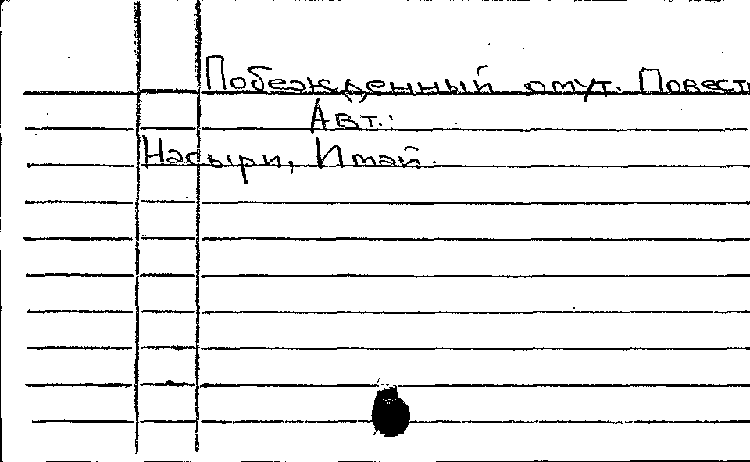 Побежденный омут. Повест
Авт.:
Насыри, Имай